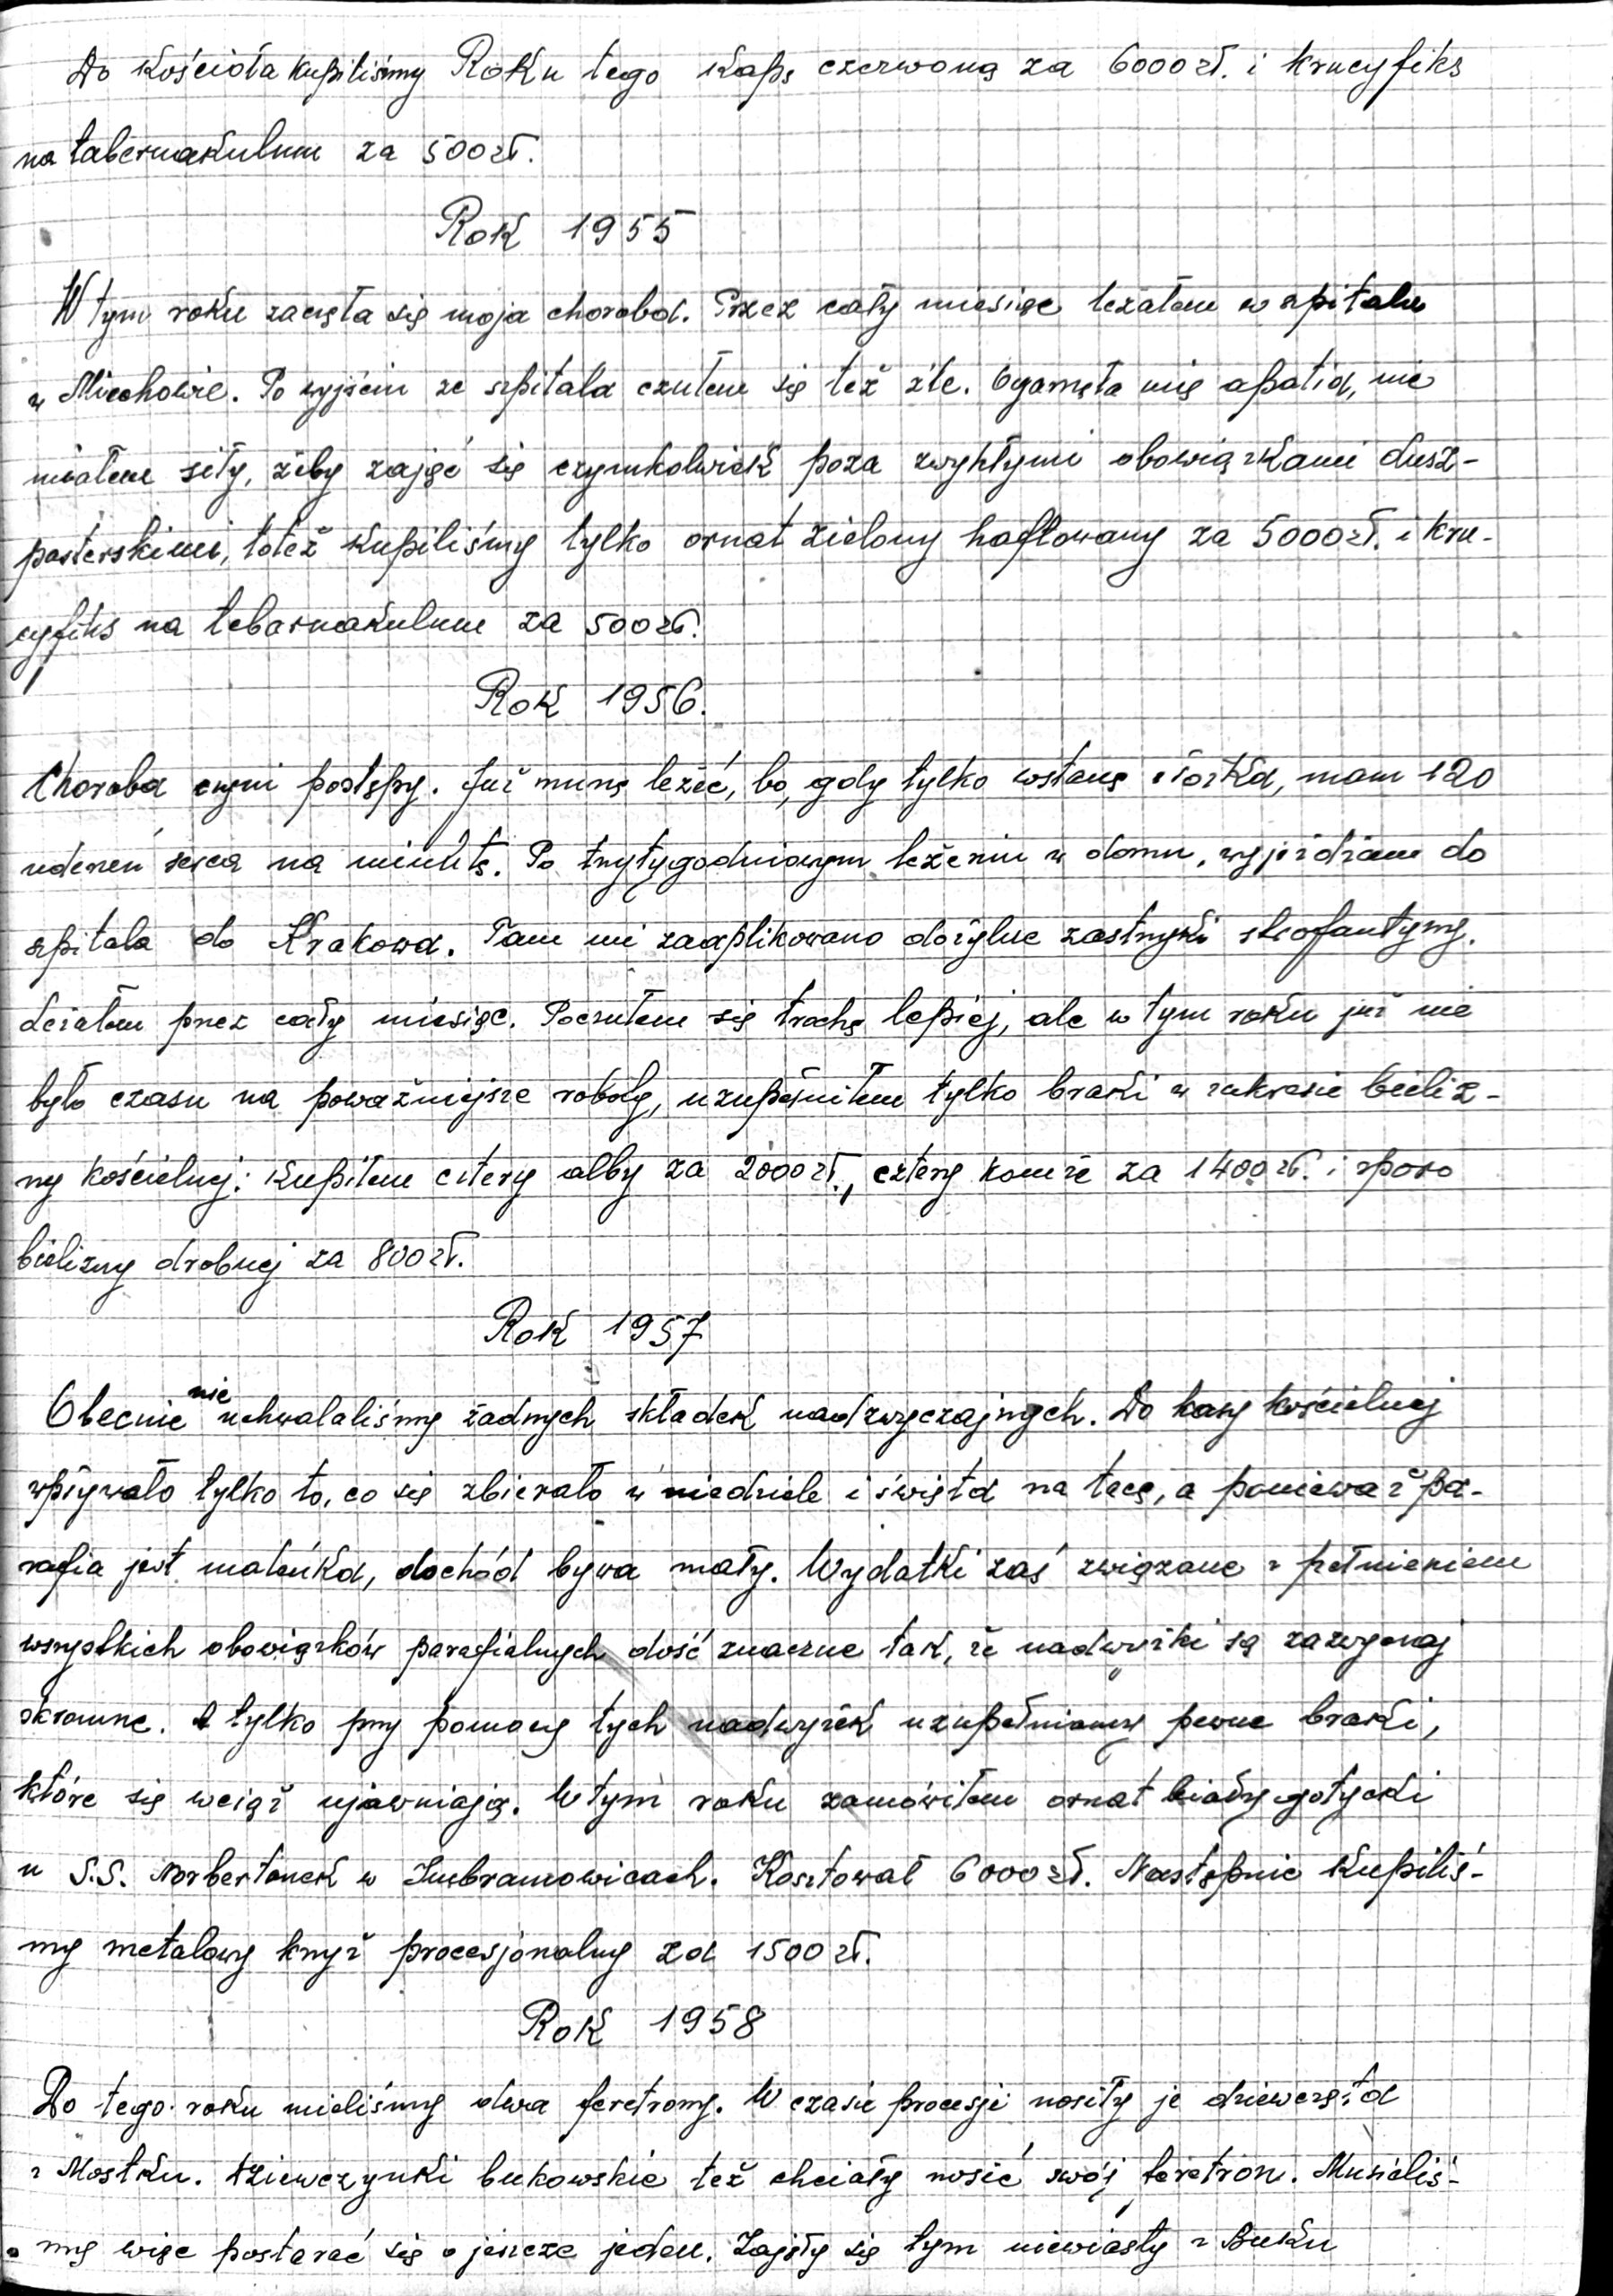 Do kościoła kupiliśmy Roku tego kapę czerwoną za 6000 zł. i krucyfiks
na tabernakulum za 500 zł.
Rok 1955
W tym roku zaczęła się moja choroba. Przez cały miesiąc leżałem w szpitalu
w Miechowie. Po wyjściu ze szpitala czułem się też źle. Ogarnęła mię apatia, nie
miałem siły, żeby zająć się czymkolwiek poza zwykłymi obowiązkami dusz-
pasterskimi, toteż kupiliśmy tylko ornat zielony haftowany za 5000 zł. i kru-
cyfiks na tebarnakulum za 500 zł.
Rok 1956.
Choroba czyni postępy. Już muszę leżeć, bo, gdy tylko wstanę z łóżka, mam 120
uderzeń serca na minutę. Po trzytygodniowym leżeniu w domu, wyjeżdżam do
szpitala do Krakowa. Tam mi zaaplikowano dożylne zastrzyki strofantyny.
Leżałem przez cały miesiąc. Poczułem się trochę lepiej, ale w tym roku już nie
było czasu na poważniejsze roboty, uzupełniłem tylko braki w zakresie bieliz-
ny kościelnej: kupiłem cztery alby za 2000 zł., cztery komże za 1400 zł. i sporo
bielizny drobnej za 800 zł.
Rok 1957
Obecnie nie uchwalaliśmy żadnych składek nadzwyczajnych. Do kasy kościelnej
wpływało tylko to, co się zbierało w niedziele i święta na tacę, a ponieważ pa-
rafia jest maleńka, dochód bywa mały. Wydatki zaś związane z pełnieniem
wszystkich obowiązków parafialnych dość znaczne tak, że nadwyżki są zazwyczaj
skromne. A tylko przy pomocy tych nadwyżek uzupełniamy pewne braki,
które się wciąż ujawniają. W tym roku zamówiłem ornat biały gotycki
u S.S. Norbertanek w Imbramowicach. Kosztował 6000 zł. Następnie kupiliś-
my metalowy krzyż procesjonalny za 1500 zł.
Rok 1958
Do tego roku mieliśmy dwa feretrony. W czasie procesji nosiły je dziewczęta
z Mostku. Dziewczynki bukowskie też chciały nosić swój feretron. Musieliś-
my więc postarać się o jeszcze jeden. Zajęły się tym niewiasty z Buku